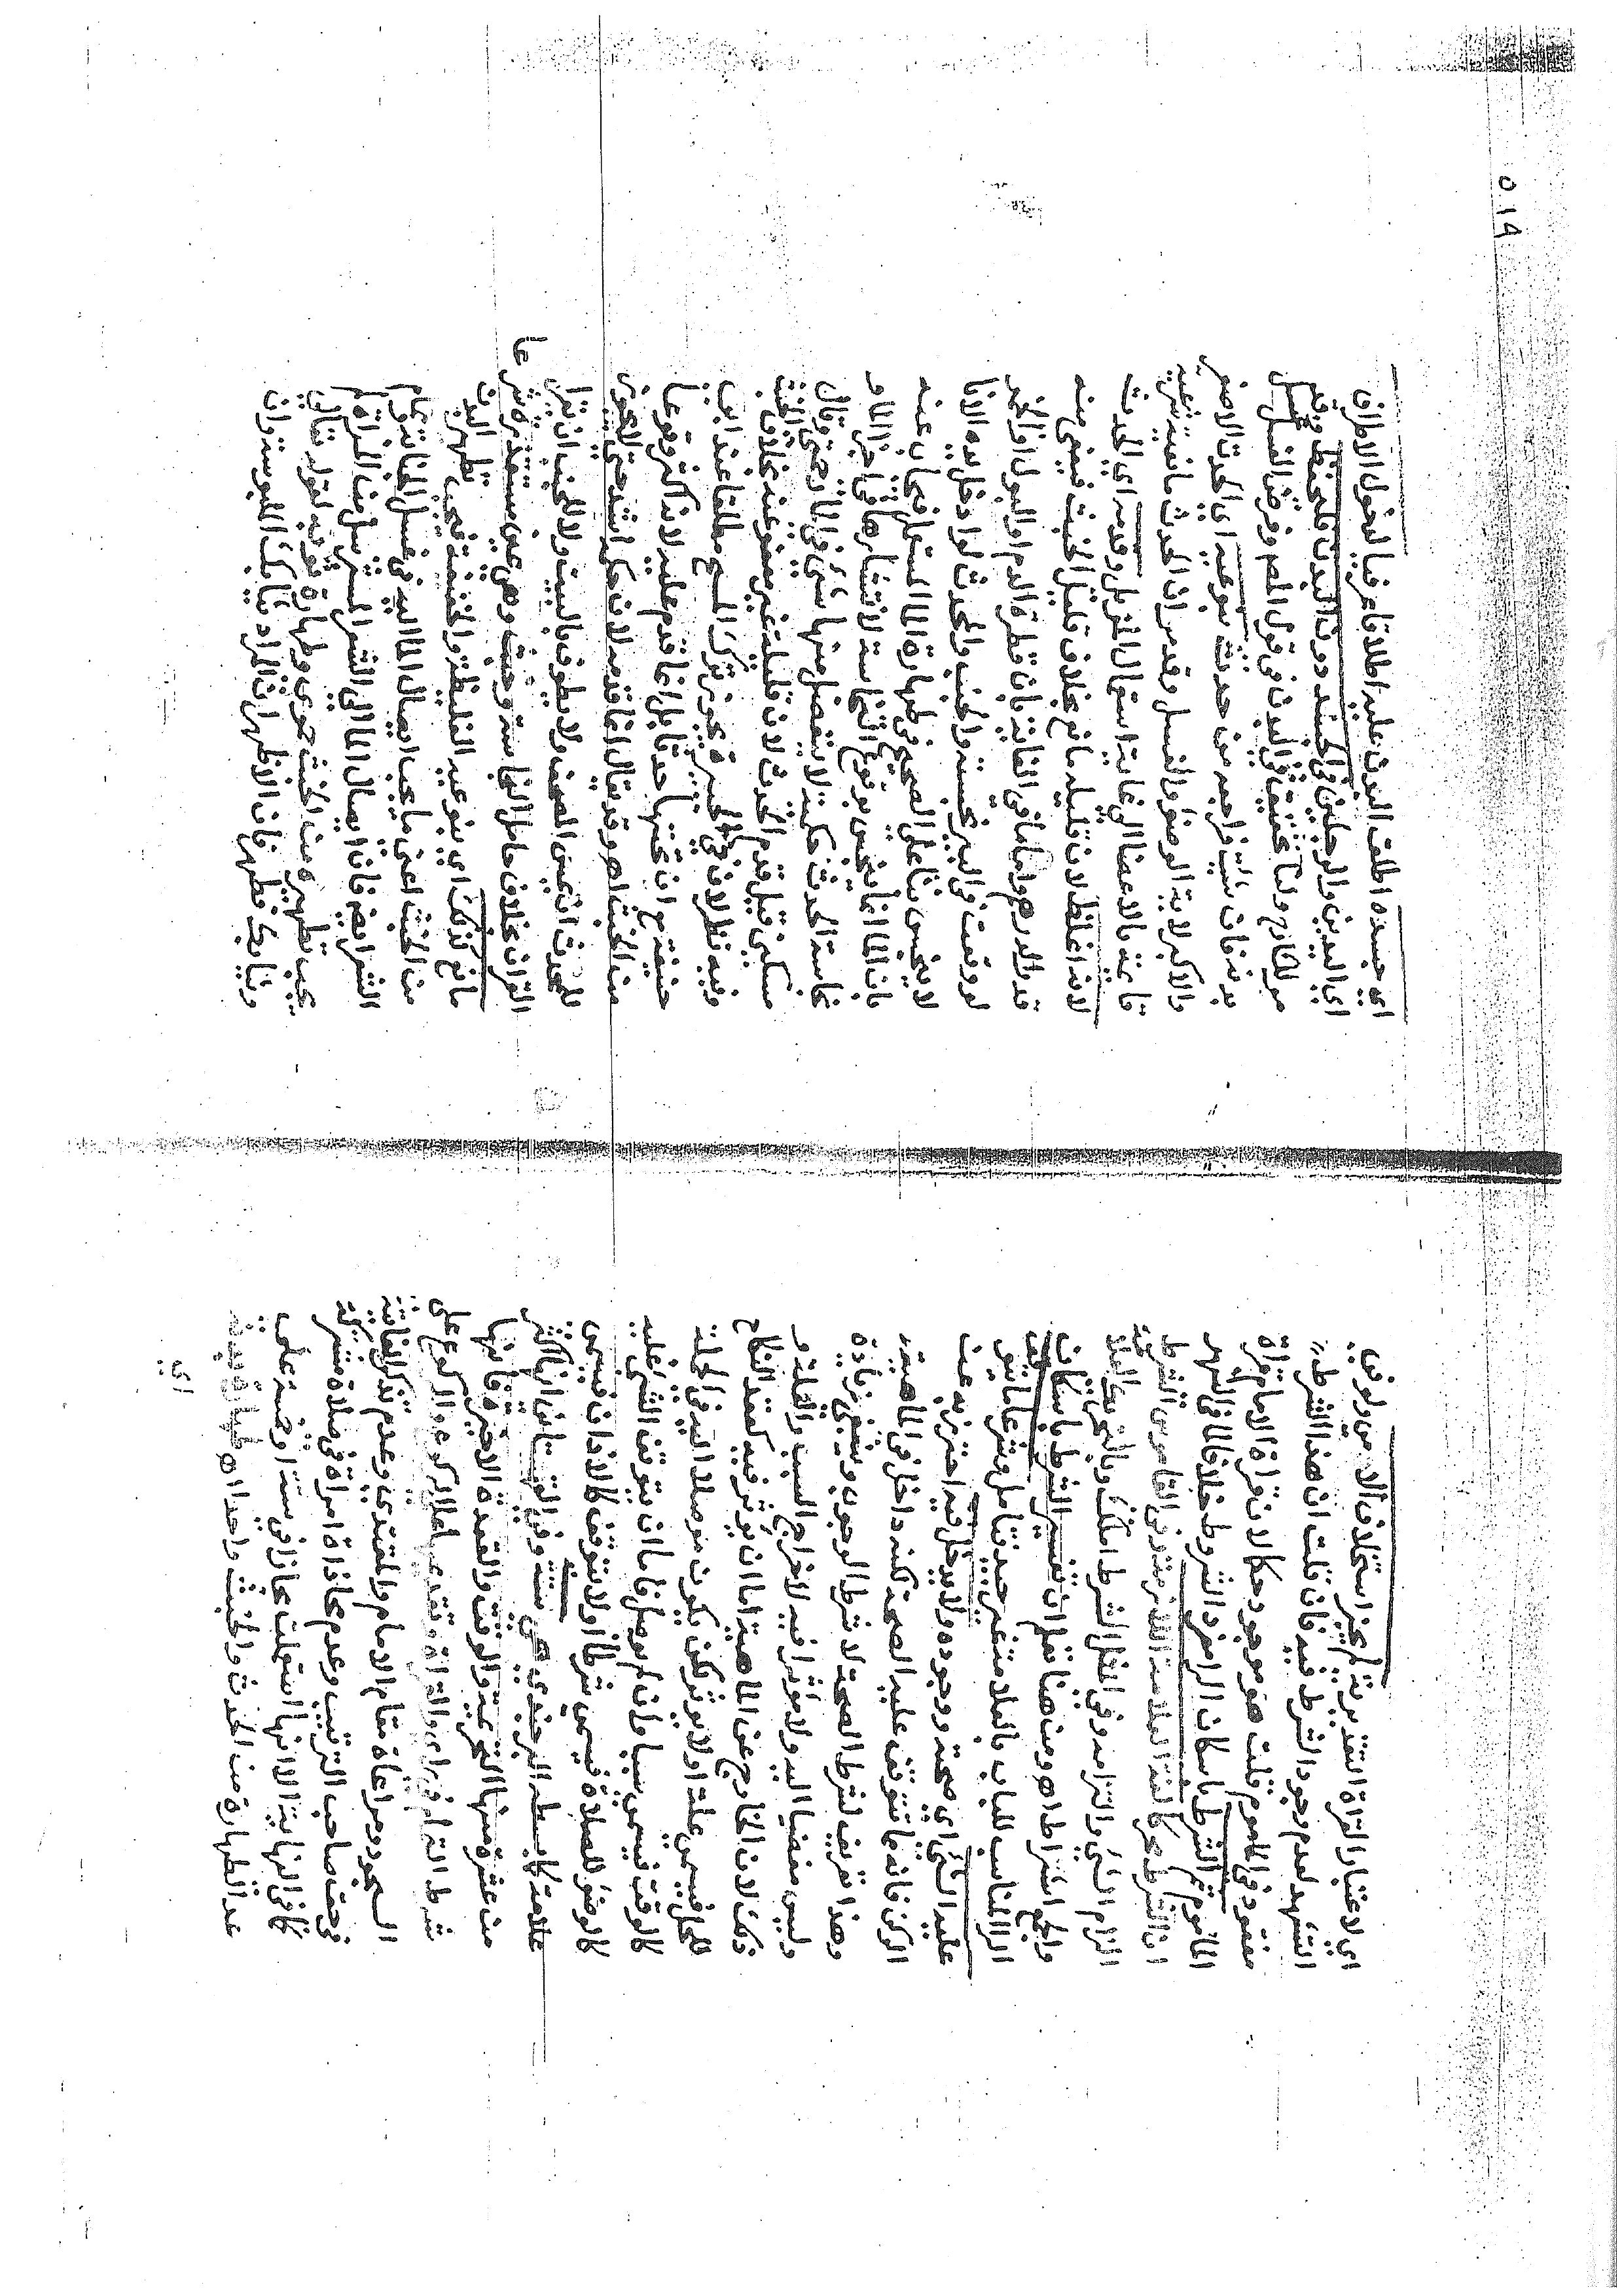 اي لاعتبار القراة التقديرية لم يجز استخلاف الامي ولو في
التشهد لعدم وجود الشرط فيه فان قلت ان هذا الشرط
مفقود في الماموم قلت هو موجود حكما لان قراة الامام قراة
الماموم ثم الشرط باسكان الرا مفرد الشروط خلافا لما في النهر
ان الشرط محركا لغة العلامة اللازمة وفي القاموس الشرط
الزام الشي والتزامه وفي المثل الشرط املك وبالتحريك العلامة
والجمع اشراط اه ومن هنا تعلم ان تفسير الشرط باسكان
الرا المناسب للباب بالعلامة غير جيد فتامل وشرعا ما يتوقف
عليه الشي اي صحته ووجوده ولا يدخل فيه احترز به عن
الركن فانه ما تتوقف عليه الصحة لكنه داخل في الماهية
وهذا تعريف لشرط الصحة لا شرط الوجوب وينبغي زيادة
وليس مفضيا اليه ولا موثرا فيه لاخراج السبب والعلة
ذلك لان الخارج عن الماهية اما ان يوثر فيه كعقد النكاح
للحل فيسمى علة او لا يوثر لكن يكون موصلا اليه في الجملة
كالوقت فيسمى سببا وان لم يوصل فاما ان يتوقف الشي عليه
كالوضو للصلاة فيسمى شرطا او لا يتوقف كالاذان فيسمى
علامة كما بسطه البرجندي هي ستة وفي القهستاني انها اكثر
من عشرة منها التحريمة والوقت والقعدة الاخيرة فانها
شرط التمام في راي والقراة وتقديمها على الركوع والركوع على
السجود ومراعاة مقام الامام والمقتدي وعدم تذكر الفائتة
في حق صاحب الترتيب وعدم محاذاة امراة في صلاة مشتركة
كما في النهاية الا انها استعملت مجازا في ستة
عد الطهارة من الحدث والخبث واحدا اه طهارة بدنه
اي
اي جسده اطلق البدن عليه اطلاقا عرفيا لدخول الاطراف
اي اليدين والرجلين في الجسد دون البدن فليحفظ وقد
مر للشارح ولنا تحقيق في البدن في قول المص وفرض الغسل غسل
بدنه فان شئت فراجعه من حدث بنوعيه اي الحدث الاصغر
والاكبر لاية الوضو والغسل وقد مر ان الحدث مانعية شرعية
قائمة بالاعضا الى غاية استعمال المزيل وقدمه اي الحدث
لانه اغلظ لان قليله مانع بخلاف قليل الخبث فيعفى منه
قدر الدرهم واما ما في الغاية بان قطرة الدم او البول او الخمر
لو وقعت في البير نجسته والجنب والمحدث لو ادخل يده الانا
لا ينجس بنا على الصحيح في طهارة الما المستعمل فيجاب عنه
بان الما انما ينجس بوقوع النجاسة لانتشارها في اجزا الماء
نجاسة الحدث حكمية لا ينفصل منها شي في الما فيصح وقال
مسكين قيل قدم الحدث لان قليله غير معفو عنه بخلاف الخبث
وفيه نظر لان في الجبيرة يجوز ترك المسح مطلقا عند ابي
حنيفة مع ان تحتها حدثا بل انما قدم عليه لانه اكثر وقوعا
من الخبث اه وقد يقال انما قدمه لان حكمه اشد حتى لا يجوز
للمحدث ان يمس المصحف ولا يطوف بالبيت ولا للجنب ان يقرا
القران بخلاف حامل النجاسة وخبث وهو عين مستقذرة شرعا
مانع كذلك اي بنوعيه الغليظة والخفيفة فيجب تطهير البدن
من الخبث اعني ما يجب ايصال الما اليه في غسل الجنابة وعم
الشعر ايضا فان ايصال الما الى الشعر المسترسل من المراة لم
يجب تطهيره من الخبث وطهارة ثوبه لقوله تعالى
وثيابك فطهر فان الاظهر ان المراد ثيابك الملبوسة وان